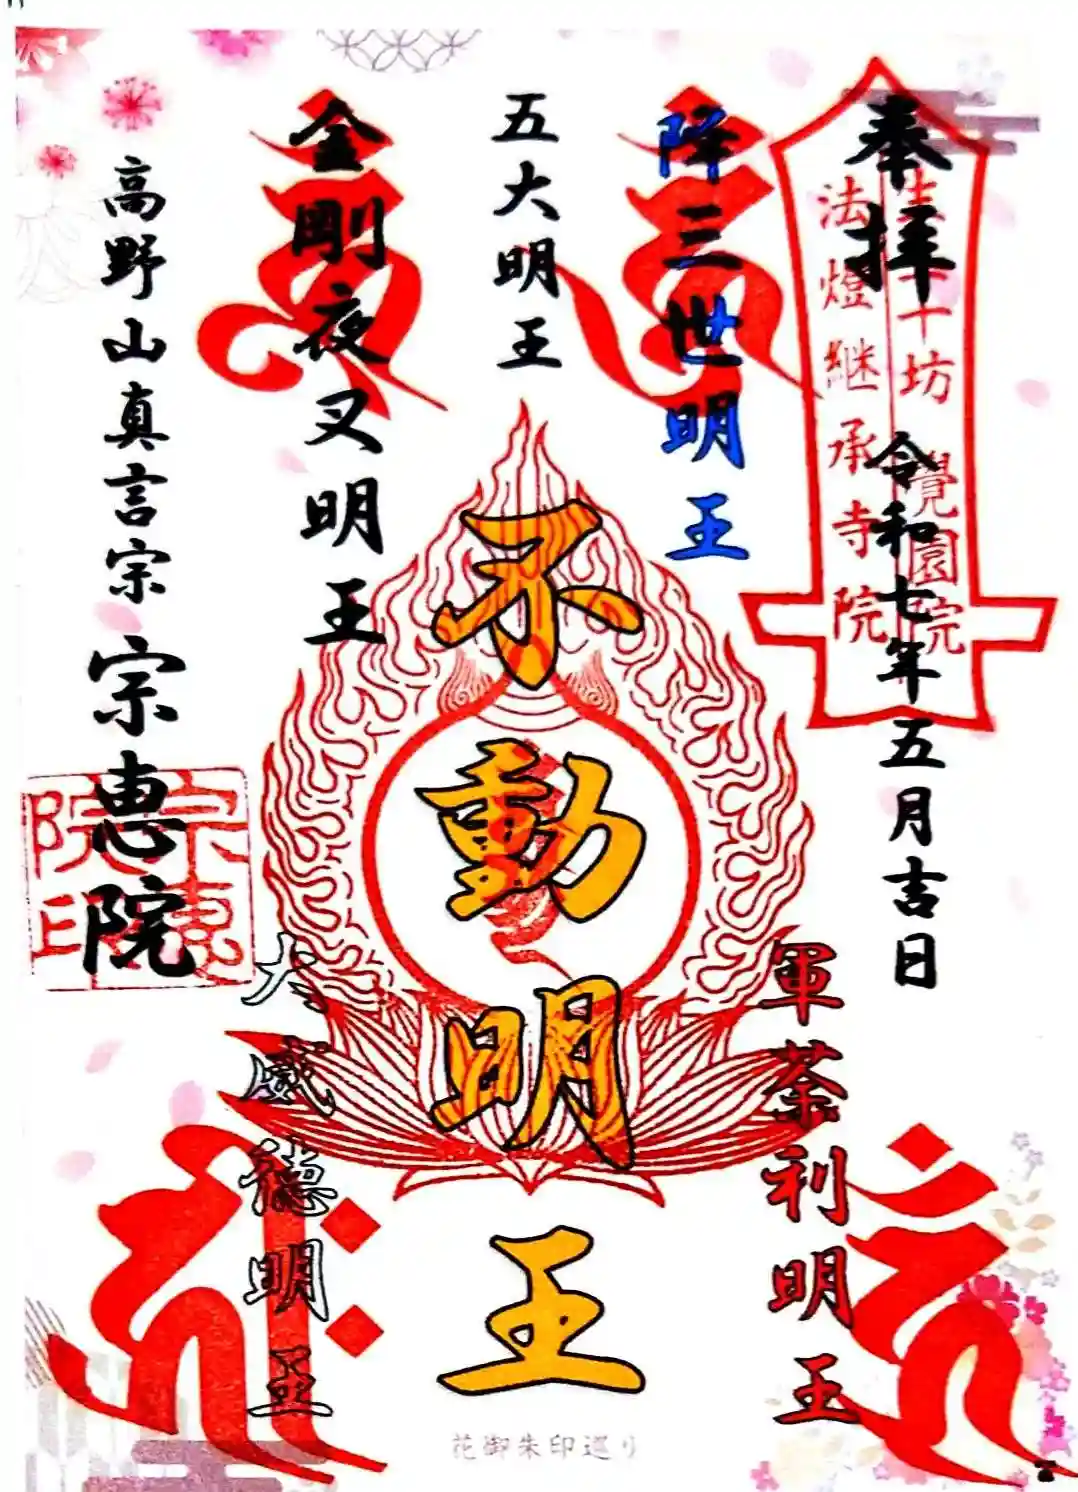 奉拝
令和七年五月吉日
十坊 覺園院
法燈継承寺院
降三世明王
軍荼利明王
五大明王
不動明王
金剛夜叉明王
大威徳明王
高野山真言宗 宗恵院
宗恵院印
花御朱印巡り